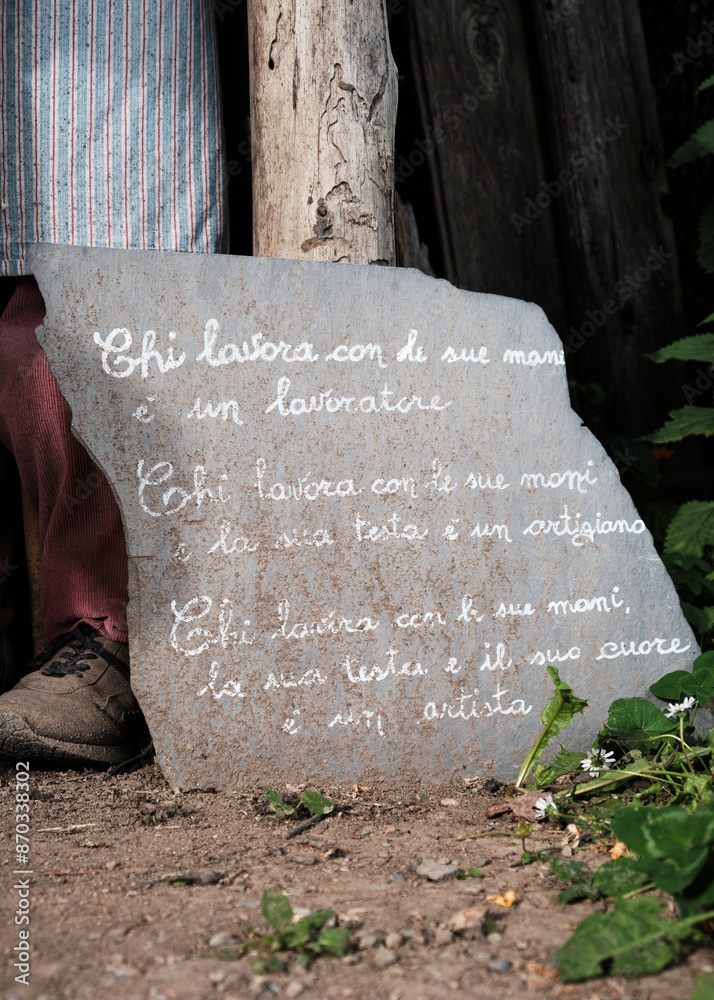 Chi lavora con le sue mani
é un lavoratore
Chi lavora con le sue mani
e la sua testa é un artigiano
Chi lavora con le sue mani,
la sua testa e il suo cuore
é un artista
Adobe Stock | #870338302